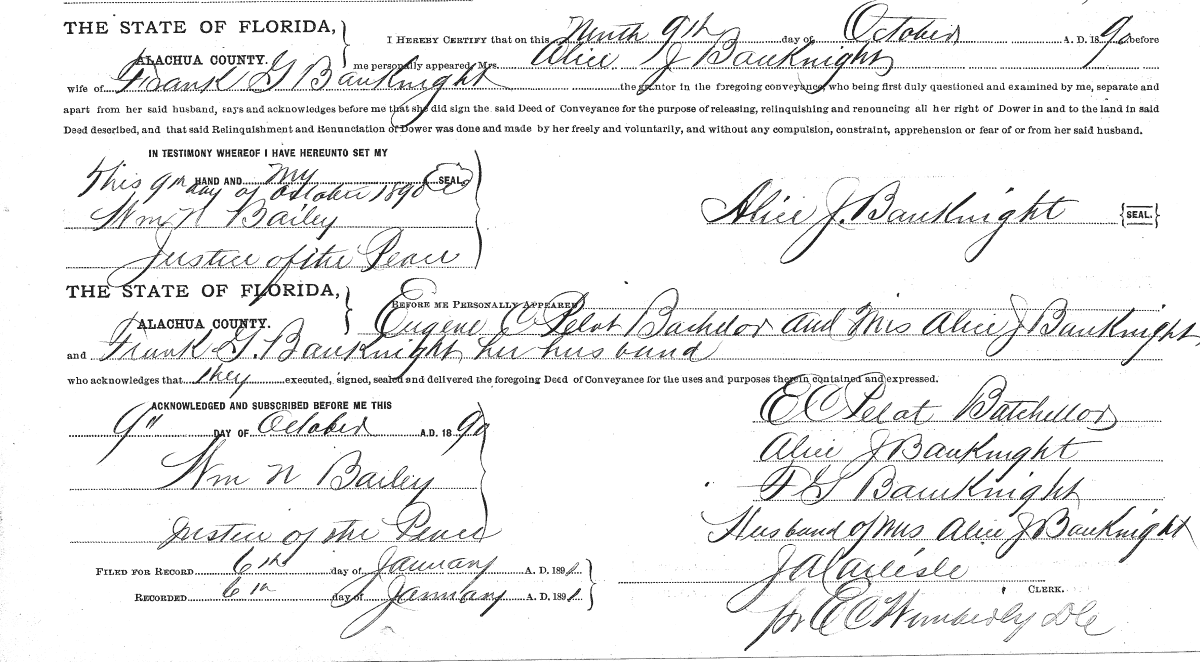 THE STATE OF FLORIDA,
ALACHUA COUNTY.
I HEREBY CERTIFY that on this Ninth 9th day of October A. D. 1890 before
me personally appeared Mrs. Alice J BauKnight
wife of Frank G BauKnight the grantor in the foregoing conveyance, who being first duly questioned and examined by me, separate and
apart from her said husband, says and acknowledges before me that she did sign the said Deed of Conveyance for the purpose of releasing, relinquishing and renouncing all her right of Dower in and to the land in said
Deed described, and that said Relinquishment and Renunciation of Dower was done and made by her freely and voluntarily, and without any compulsion, constraint, apprehension or fear of or from her said husband.
IN TESTIMONY WHEREOF I HAVE HEREUNTO SET MY
HAND AND my SEAL
This 9th day of October 1890
Wm N Bailey
Justice of the Peace
Alice J. BauKnight {SEAL.}
THE STATE OF FLORIDA,
ALACHUA COUNTY.
BEFORE ME PERSONALLY APPEARED
Eugene C Pelot Bachelor and Mrs Alice J BauKnight
and Frank G. BauKnight her husband
who acknowledges that they executed, signed, sealed and delivered the foregoing Deed of Conveyance for the uses and purposes therein contained and expressed.
ACKNOWLEDGED AND SUBSCRIBED BEFORE ME THIS
9" DAY OF October A.D. 1890
Wm N Bailey
Justice of the Peace
E C Pelot Batchellor
Alice J BauKnight
F G BauKnight
Husband of Mrs Alice J BauKnight
FILED FOR RECORD 6th day of January A. D. 1891
RECORDED 6th day of January A. D. 1891
J A Carlisle
CLERK.
pr E C Wimberly DC